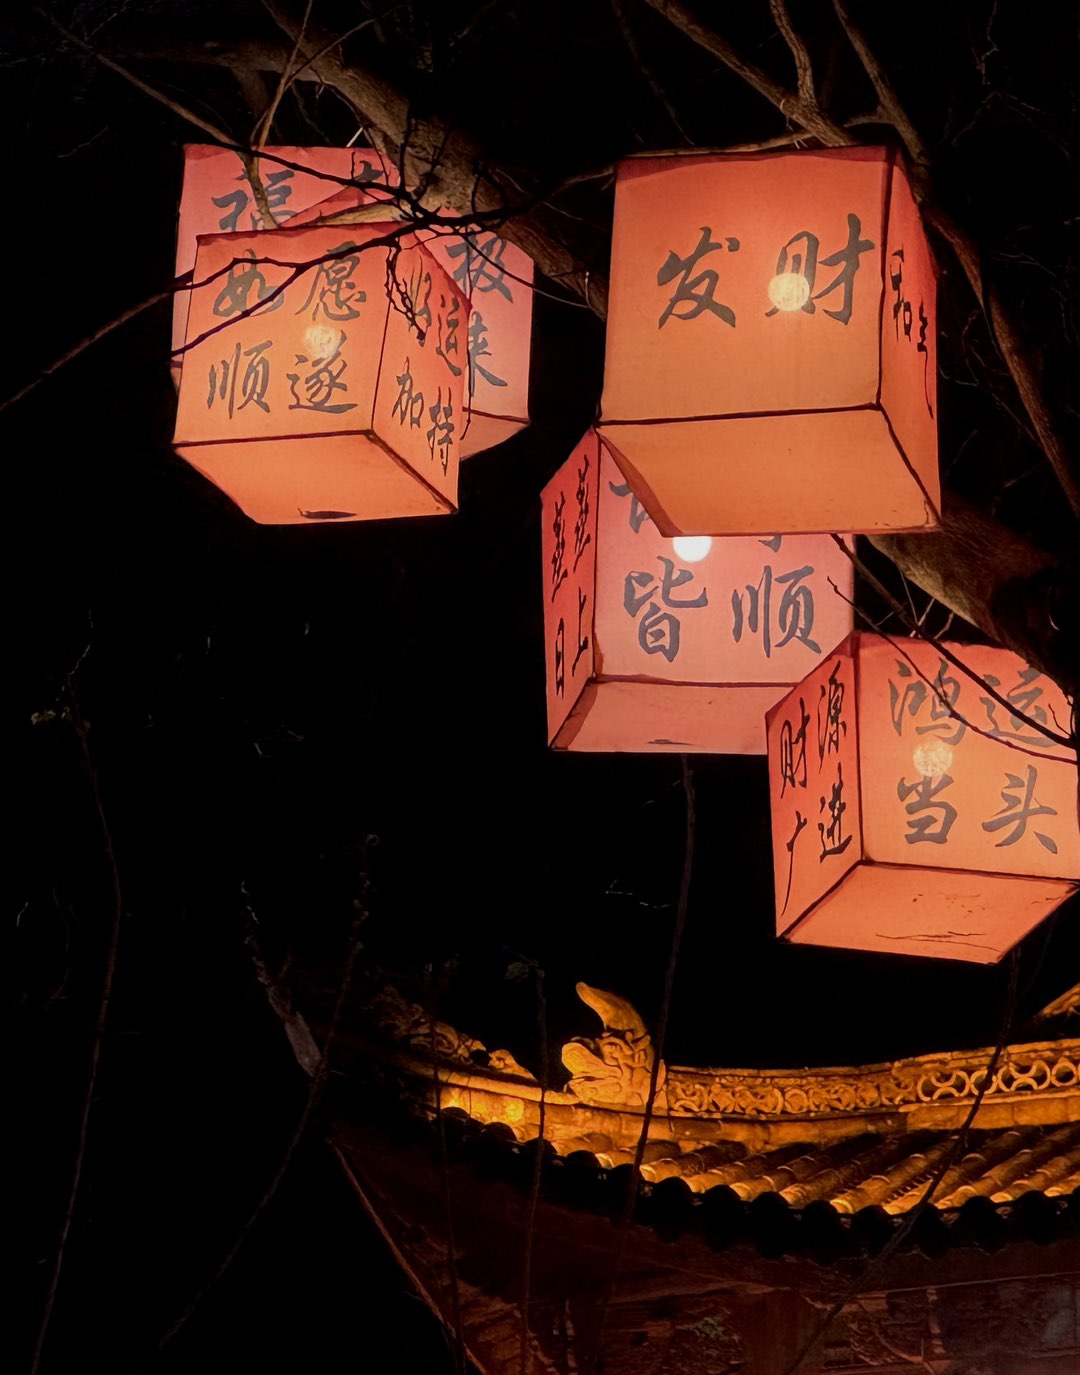 福
极
来
如愿
顺遂
好运
加持
发财
和气
蒸蒸
日上
皆顺
财源
广进
鸿运
当头